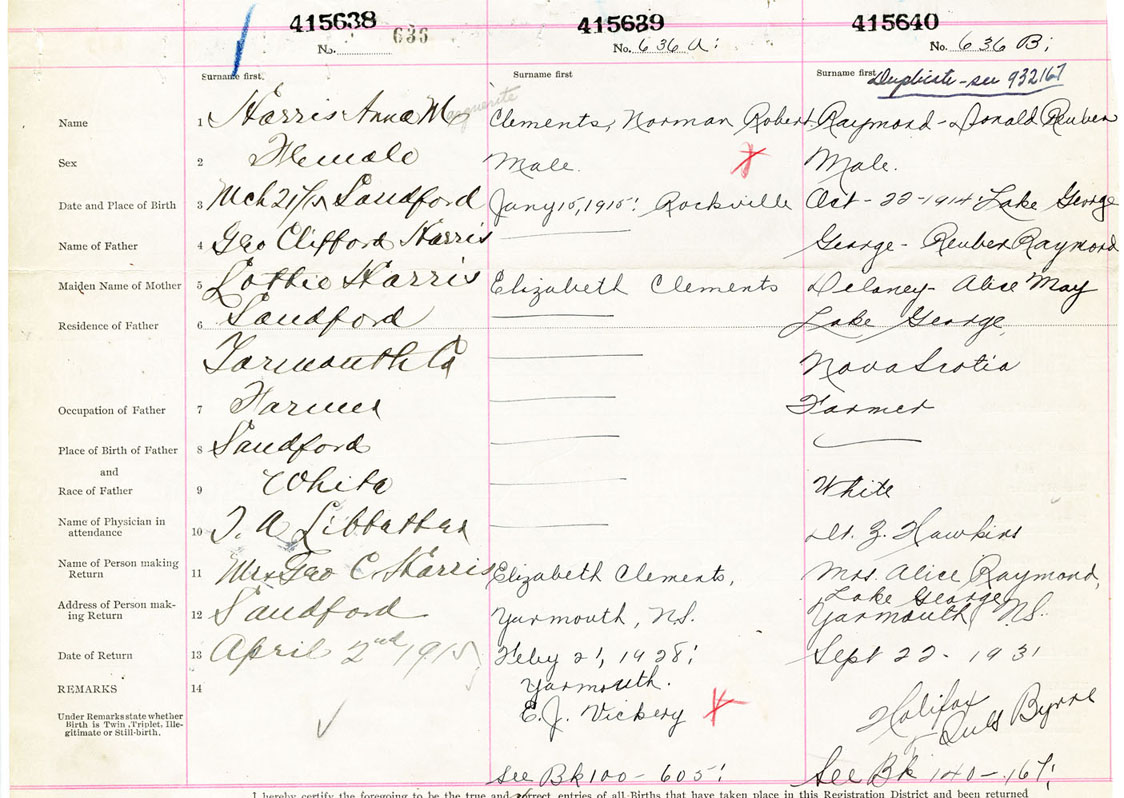 415638 415639 415640
No. 636 No. 636 A: No. 636 B;
Surname first. Surname first Surname first Duplicate - see 932167
Name 1 Harris Anna M Marguerite Clements, Norman Robert Raymond - Donald Reuben
Sex 2 Female Male. X Male.
Date and Place of Birth 3 Mch 21/15 Sandford Jany 15, 1915: Rockville Oct - 22 - 1914 Lake George
Name of Father 4 Geo Clifford Harris George - Reuben Raymond
Maiden Name of Mother 5 Lottie Harris Elizabeth Clements Delaney - Alice May
Residence of Father 6 Sandford Lake George,
Yarmouth Co Nova Scotia
Occupation of Father 7 Farmer Farmer
Place of Birth of Father 8 Sandford
and
Race of Father 9 White White
Name of Physician in
attendance 10 J. A. Dr. Z. Hawkins
Name of Person making
Return 11 Mrs Geo C. Harris Elizabeth Clements, Mrs. Alice Raymond,
Lake George
Address of Person mak-
ing Return 12 Sandford Yarmouth, N.S. Yarmouth, N.S.
Date of Return 13 April 2nd 1915 Feby 2', 1928; Sept 22 - 1931
REMARKS 14 Yarmouth. Halifax
Under Remarks state whether
Birth is Twin, Triplet, Ille-
gitimate or Still-birth.
E. J. Vickery X Byrne
See Bk 100 - 605; See Bk 140 - 167;
I hereby certify the foregoing to be the true and correct entries of all Births that have taken place in this Registration District and have been returned